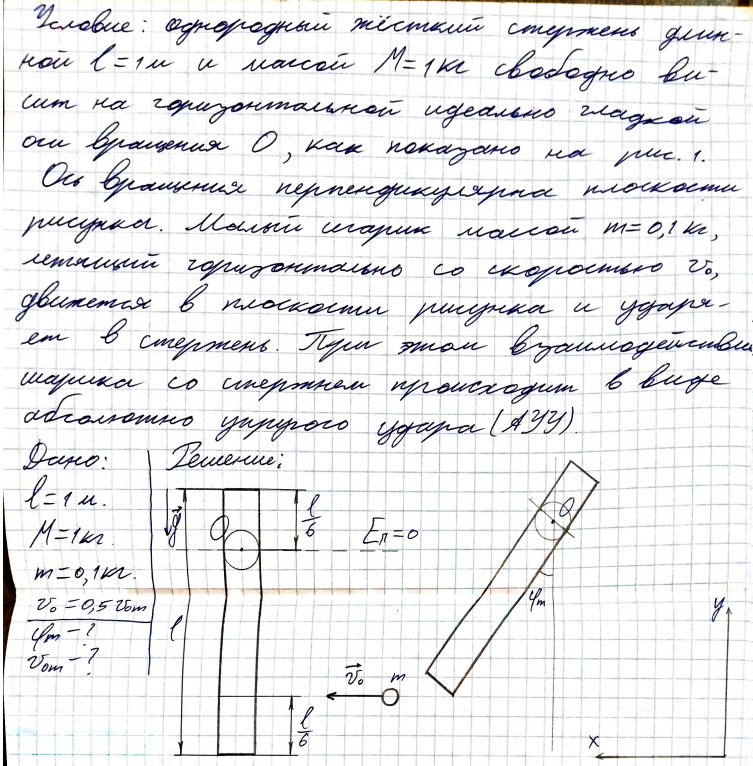 Условие: однородный жёсткий стержень длин-
ной l = 1 м и массой M = 1 кг свободно ви-
сит на горизонтальной идеально гладкой
оси вращения O, как показано на рис. 1.
Ось вращения перпендикулярна плоскости
рисунка. Малый шарик массой m = 0,1 кг,
летящий горизонтально со скоростью v₀,
движется в плоскости рисунка и ударя-
ет в стержень. При этом взаимодействие
шарика со стержнем происходит в виде
абсолютно упругого удара (АУУ).
Дано: Решение:
l = 1 м.
M = 1 кг.
m = 0,1 кг.
v₀ = 0,5 v₀m
φm - ?
v₀m - ?
g⃗
O
l/6
Eп = 0
l
v⃗₀
m
l/6
O
φm
y
x